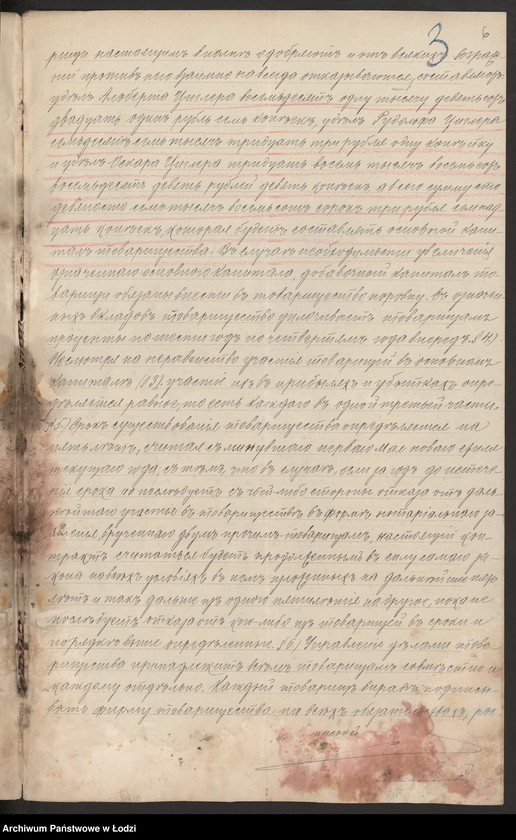 3 6
рищи настоящимъ вполнѣ одобряютъ и отъ всякихъ возраже-
ній противъ него взаимно навсегда отказываются, составляютъ:
удѣлъ Альберта Циглера восемьдесятъ одну тысячу девятьсотъ
двадцать одинъ рубль семь копѣекъ, удѣлъ Рудольфа Циглера
семьдесятъ семь тысячъ тридцать три рубля одну копѣйку
и удѣлъ Оскара Циглера тридцать восемь тысячъ восемьсотъ
восемьдесятъ девять рублей девять копѣекъ, а всего сумму сто
девяносто семь тысячъ восемьсотъ сорокъ три рубля семнад-
цать копѣекъ, которая будетъ составлять основной капи-
талъ товарищества. Въ случаѣ необходимости увеличенія
означеннаго основного капитала, добавочный капиталъ то-
варищи обязаны внести въ товарищество поровну. Съ означен-
ныхъ вкладовъ товарищество уплачиваетъ товарищамъ
проценты по шести въ годъ по четвертямъ года впередъ. § 4)
Несмотря на неравенство участія товарищей въ основномъ
капиталѣ (§ 3), участіе ихъ въ прибыляхъ и убыткахъ опре-
дѣляется равное, то есть каждаго въ одной третьей части.
§ 5) Срокъ существованія товарищества опредѣляется на
пять лѣтъ, считая съ минувшаго перваго Мая новаго стиля
текущаго года, съ тѣмъ, что въ случаѣ, если за годъ до истече-
нія срока не послѣдуетъ съ чьей-либо стороны отказа отъ даль-
нѣйшаго участія въ товариществѣ въ формѣ нотаріальнаго за-
явленія врученнаго двумъ прочимъ товарищамъ, настоящій кон-
трактъ считаться будетъ продолженнымъ въ силу самаго за-
кона на всѣхъ условіяхъ въ немъ изложенныхъ на дальнѣйшія пять
лѣтъ и такъ дальше изъ одного пятилѣтія на другое, пока не
послѣдуетъ отказа отъ кого-либо изъ товарищей въ срокъ и
порядкѣ выше опредѣленные. § 6) Управленіе дѣлами това-
рищества принадлежитъ всѣмъ товарищамъ совмѣстно и
каждому отдѣльно. Каждый товарищъ вправѣ подписы-
вать фирму товарищества на всѣхъ обязательствахъ, рос
пиской
Archiwum Państwowe w Łodzi